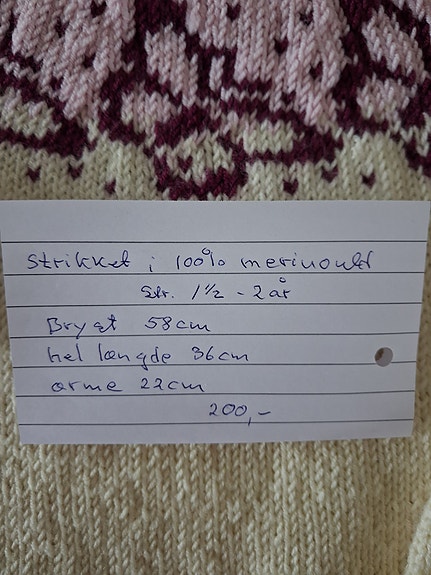 Strikket i 100% merinould
Str. 1½ - 2 år
Bryst 58cm
hel længde 36cm
arme 22cm
200,-